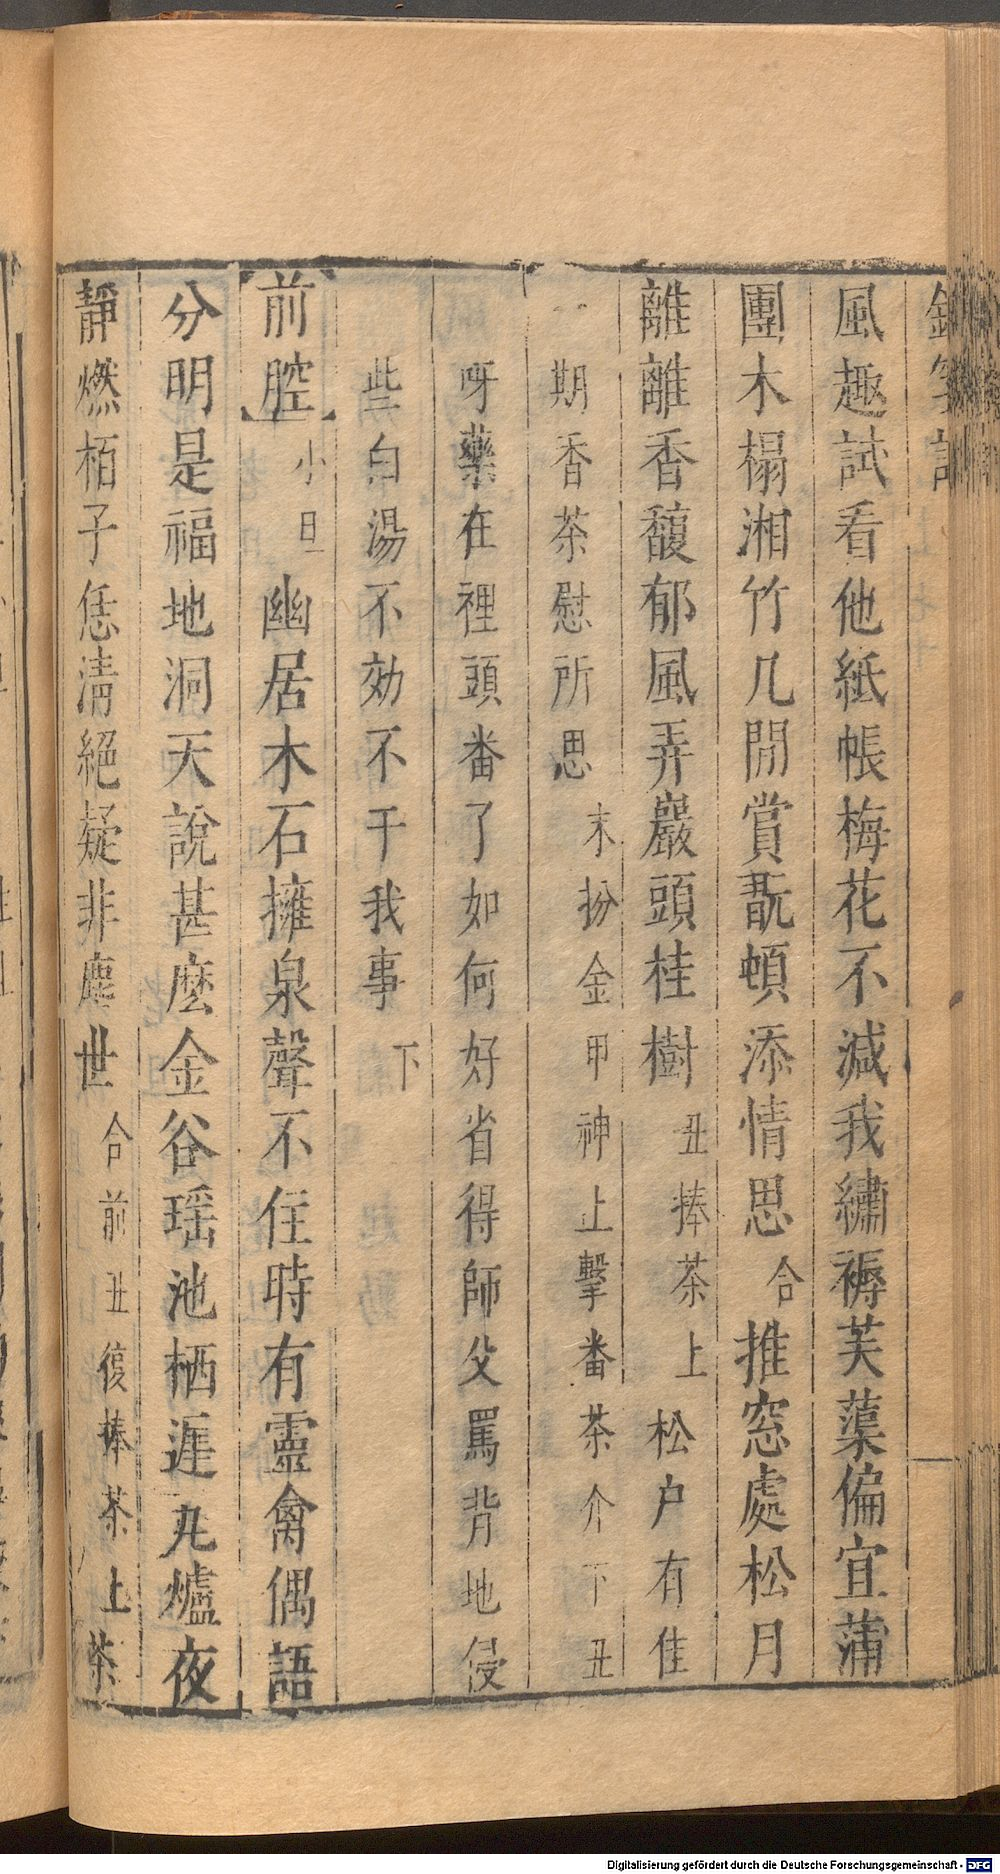 風趣試看他紙帳梅花不減我繡褥芙蕖偏宜蒲
團木榻湘竹几閒賞翫頓添情思合推窓處松月
離離香馥郁風弄巖頭桂樹丑捧茶上松户有佳
期香茶慰所思末扮金甲神上擊番茶介下丑
呀藥在裡頭番了如何好省得師父罵背地侵
些白湯不効不干我事下
前腔小旦幽居木石擁泉聲不住時有靈禽偶語
分明是福地洞天說甚麽金谷瑶池栖遲丸爐夜
靜燃栢子恁淸絕疑非塵世合前丑復捧茶上茶
Digitalisierung gefördert durch die Deutsche Forschungsgemeinschaft - DFG